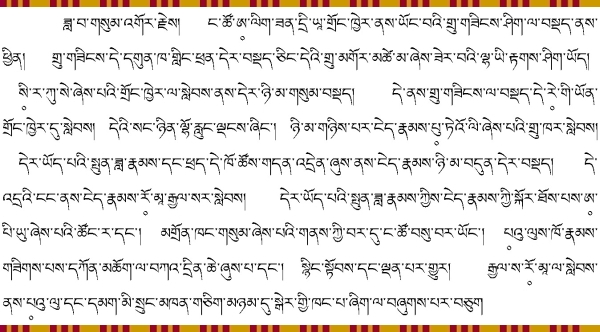 ཟླ་བ་གསུམ་འགོར་རྗེས། ང་ཚོ་ཨ༷་ལིག་ཟན་དྲི་ཡ༷་གྲོང་ཁྱེར་ནས་ཡོང་བའི་གྲུ་གཟིངས་ཤིག་ལ་བསྡད་ནས་
ཕྱིན། གྲུ་གཟིངས་དེ་དགུན་ཁ་གླིང་ཕྲན་དེར་བསྡད་ཅིང་དེའི་གྲུ་མགོར་མཚེ་མ་ཞེས་ཟེར་བའི་ལྷ་ཡི་རྟགས་ཤིག་ཡོད།
སི༷་ར་ཀུ་སེ་ཞེས་པའི་གྲོང་ཁྱེར་ལ་སླེབས་ནས་དེར་ཉི་མ་གསུམ་བསྡད། དེ་ནས་གྲུ་གཟིངས་ལ་བསྡད་དེ་རེ༷་གི་ཡོན་
གྲོང་ཁྱེར་དུ་སླེབས། དེའི་སང་ཉིན་ལྷོ་རླུང་ལྡངས་ཞིང་། ཉི་མ་གཉིས་པར་ངེད་རྣམས་པུ༷་ཏེའོ་ལི་ཞེས་པའི་གྲུ་ཁར་སླེབས།
དེར་ཡོད་པའི་སྤུན་ཟླ་རྣམས་དང་ཕྲད་དེ་ཁོ་ཚོས་གདན་འདྲེན་ཞུས་ནས་ངེད་རྣམས་ཉི་མ་བདུན་དེར་བསྡད། དེ་
འདྲའི་ངང་ནས་ངེད་རྣམས་རོ༷་མཱ་རྒྱལ་སར་སླེབས། དེར་ཡོད་པའི་སྤུན་ཟླ་རྣམས་ཀྱིས་ངེད་རྣམས་ཀྱི་སྐོར་ཐོས་པས་ཨ༷་
པི་ཡུ་ཞེས་པའི་ཚོང་ར་དང་། མགྲོན་ཁང་གསུམ་ཞེས་པའི་གནས་ཀྱི་བར་དུ་ང་ཚོ་བསུ་བར་ཡོང་། པའུ༷་ལུས་ཁོ་རྣམས་
གཟིགས་པས་དཀོན་མཆོག་ལ་བཀའ་དྲིན་ཆེ་ཞུས་པ་དང་། སྙིང་སྟོབས་དང་ལྡན་པར་གྱུར། རྒྱལ་ས་རོ༷་མཱ་ལ་སླེབས་
ནས་པའུ༷་ལུ་དང་དམག་མི་སྲུང་མཁན་གཅིག་མཉམ་དུ་སྒེར་གྱི་ཁང་པ་ཞིག་ལ་བཞུགས་པར་བཅུག